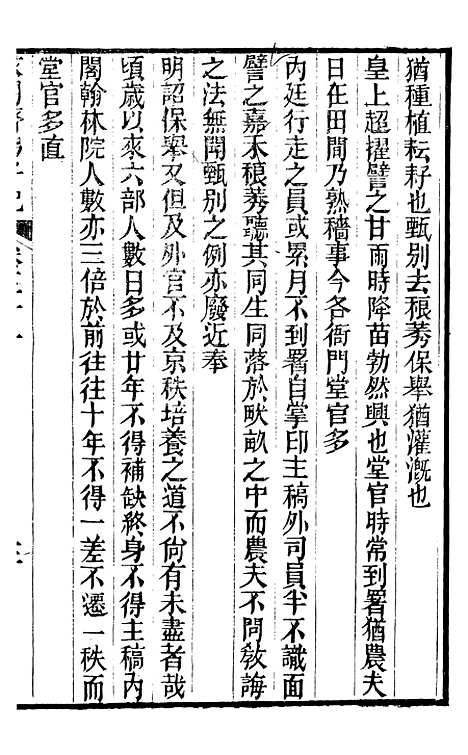 猶種植耘耔也甄別去稂莠保舉猶灌漑也
皇上超擢譬之甘雨時降苗勃然興也堂官時常到署猶農夫
日在田間乃熟穡事今各衙門堂官多
內廷行走之員或累月不到署自掌印主稿外司員半不識面
譬之嘉禾稂莠聽其同生同落於畎畝之中而農夫不問敎誨
之法無聞甄別之例亦廢近奉
明詔保舉又但及外官不及京秩培養之道不尙有未盡者哉
頃歲以來六部人數日多或廿年不得補缺終身不得主稿內
閣翰林院人數亦三倍於前往往十年不得一差不遷一秩而
堂官多直